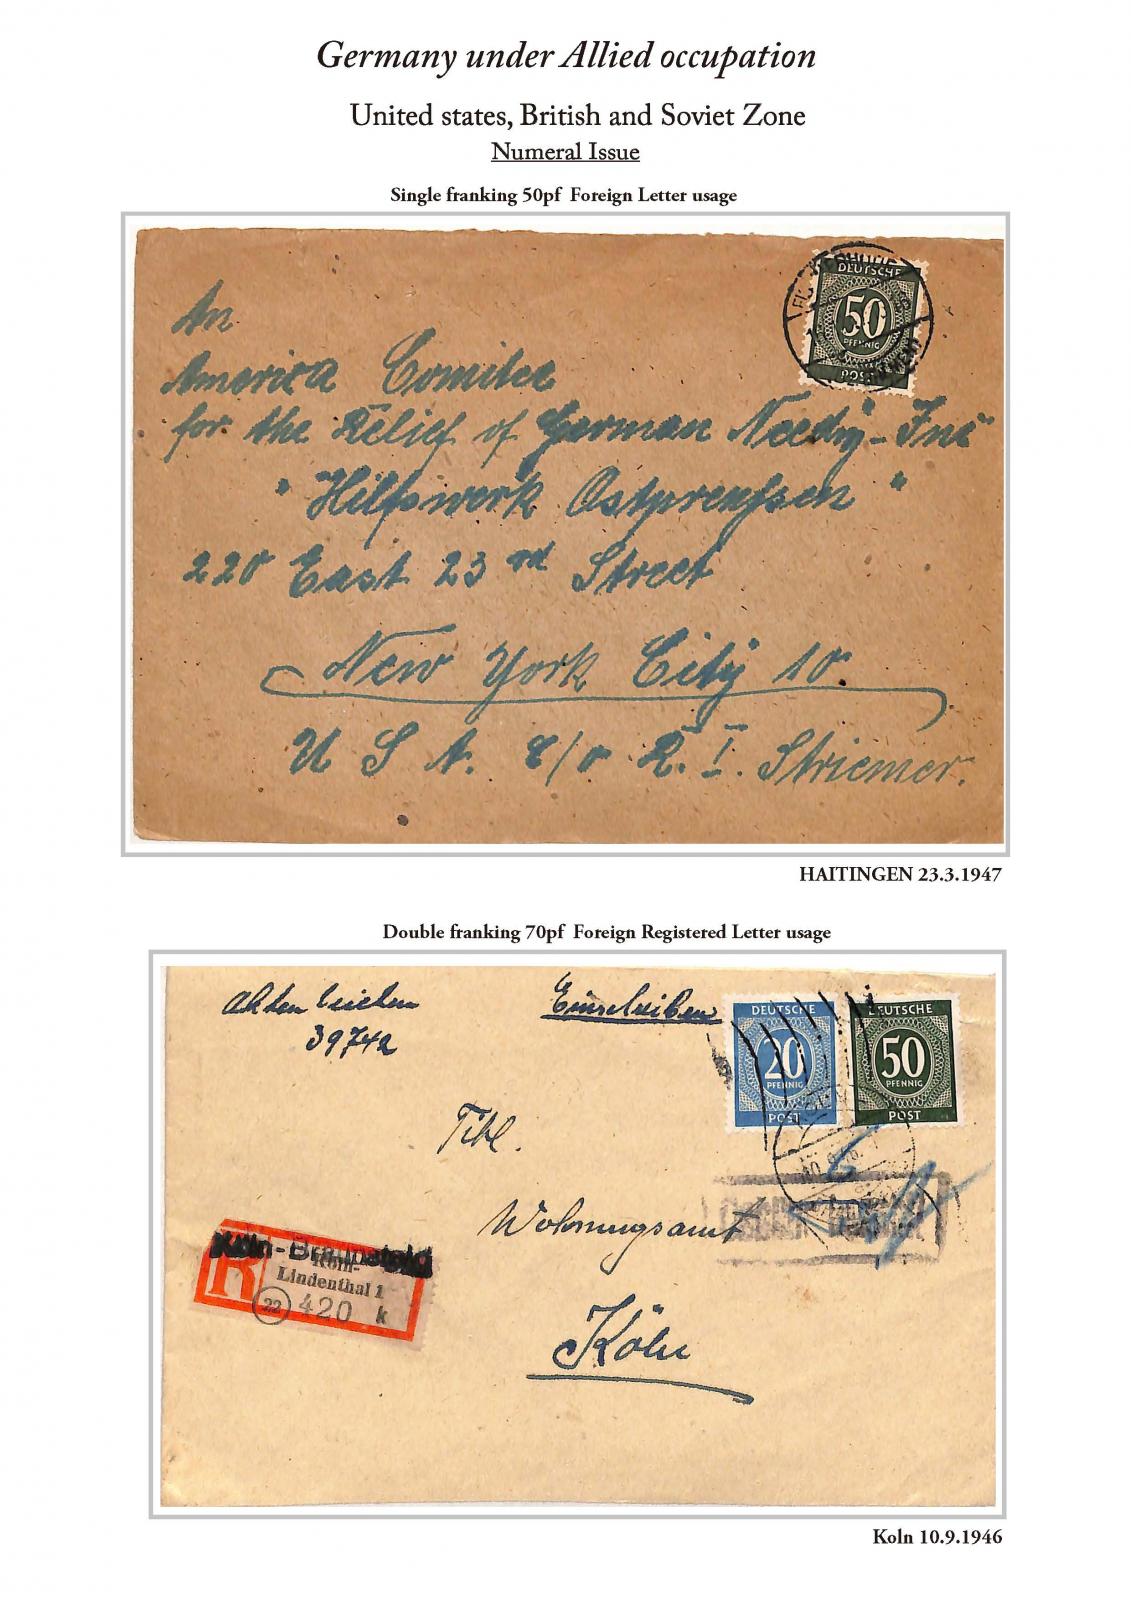 Germany under Allied occupation
United states, British and Soviet Zone
Numeral Issue
Single franking 50pf Foreign Letter usage
DEUTSCHE
50
PFENNIG
POST
An
America Comitee
for the Relief of German Needy-Inc
"Hilfswerk Ostpreußen"
220 East 23rd Street
New York City 10.
U S A. c/o R. I. Striemer.
HAITINGEN 23.3.1947
Double franking 70pf Foreign Registered Letter usage
Aktenzeichen
39742
Einschreiben
DEUTSCHE
20
PFENNIG
POST
DEUTSCHE
50
PFENNIG
POST
Wohnungsamt
Köln
Köln-Braunsfeld
R
Köln-
Lindenthal 1
22 420 k
Koln 10.9.1946